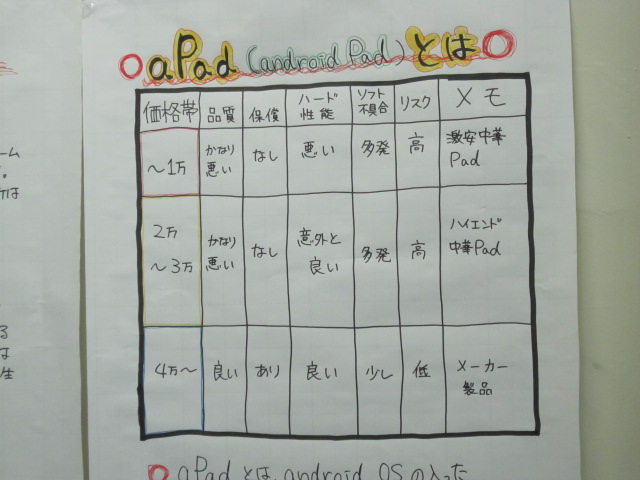 aPad (android Pad) とは
価格帯 品質 保償 ハード性能 ソフト不具合 リスク メモ
～1万 かなり悪い なし 悪い 多発 高 激安中華Pad
2万～3万 かなり悪い なし 意外と良い 多発 高 ハイエンド中華Pad
4万～ 良い あり 良い 少し 低 メーカー製品
aPadとは android OSの入った